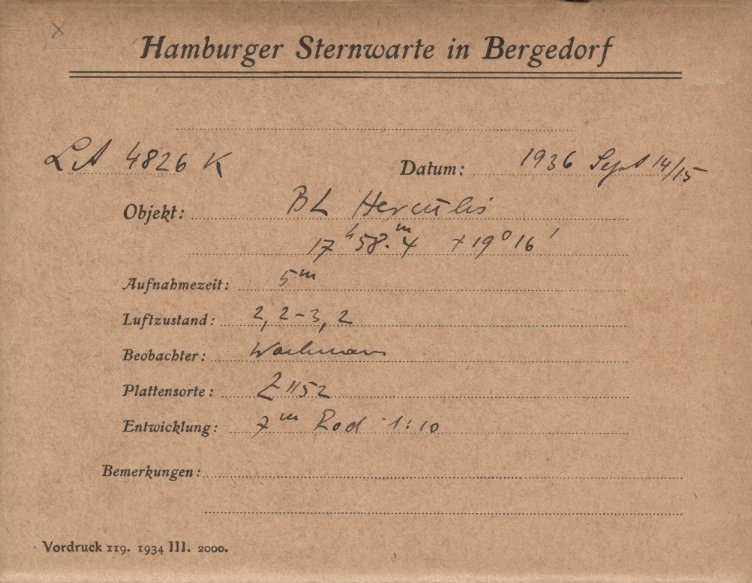 Hamburger Sternwarte in Bergedorf
LA 4826 K Datum: 1936 Sept 14/15
Objekt: BL Herculis
17ʰ 58.ᵐ4 +19° 16'
Aufnahmezeit: 5ᵐ
Luftzustand: 2, 2-3, 2
Beobachter: Wachmann
Plattensorte: Z 1152
Entwicklung: 7ᵐ Rod 1:10
Bemerkungen:
Vordruck 119. 1934 III. 2000.